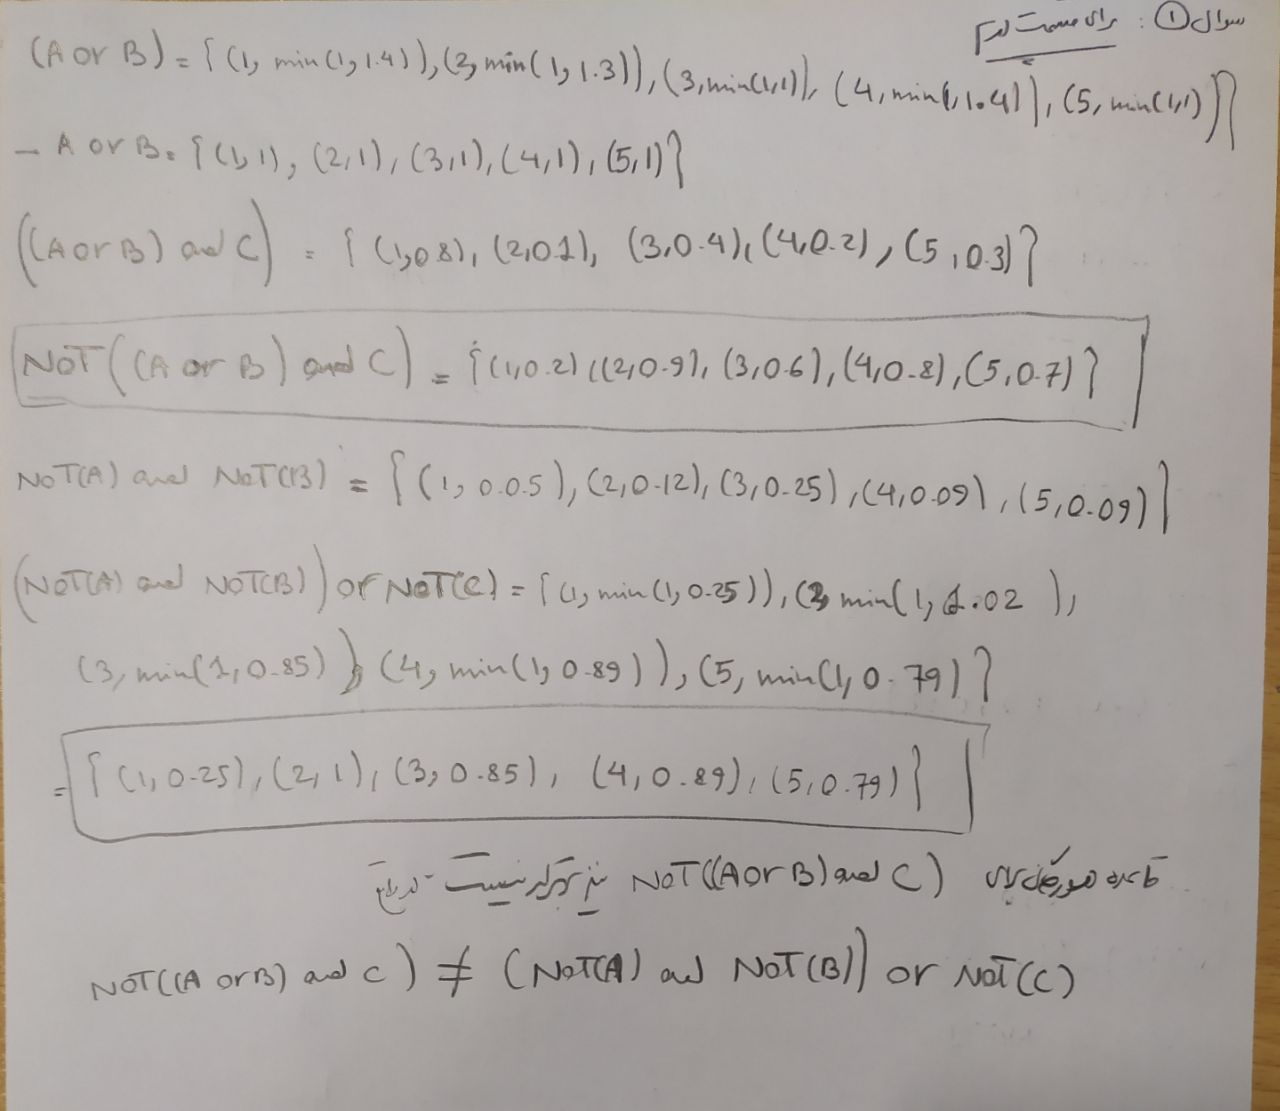 سوال ①: برای قسمت دوم
(A or B) = {(1, min(1,1.4)), (2, min(1,1.3)), (3, min(1,1)), (4, min(1,1.4)), (5, min(1,1))}
- A or B = {(1,1), (2,1), (3,1), (4,1), (5,1)}
((A or B) and C) = {(1,0.8), (2,0.1), (3,0.4), (4,0.2), (5,0.3)}
NOT((A or B) and C) = {(1,0.2), (2,0.9), (3,0.6), (4,0.8), (5,0.7)}
NOT(A) and NOT(B) = {(1, 0.05), (2,0.12), (3,0.25), (4,0.09), (5,0.09)}
(NOT(A) and NOT(B)) or NOT(C) = {(1, min(1, 0.25)), (2, min(1, 1.02 ),
(3, min(1,0.85)), (4, min(1, 0.89)), (5, min(1, 0.79)}
= {(1,0.25), (2,1), (3, 0.85), (4, 0.89), (5,0.79)}
NOT((A or B) and C) نیز برقرار نیست
NOT((A or B) and C) ≠ (NOT(A) and NOT(B)) or NOT(C)